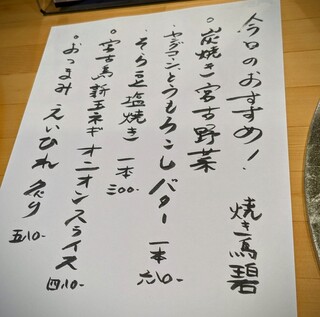 今日のおすすめ！
焼き鳥 碧
○炭焼き宮古野菜
ヤングコーンとうもろこしバター 一本
そら豆塩焼き 一本 三〇〇-
○宮古島新玉ネギ オニオンスライス
○おつまみ えいひれ 炙り